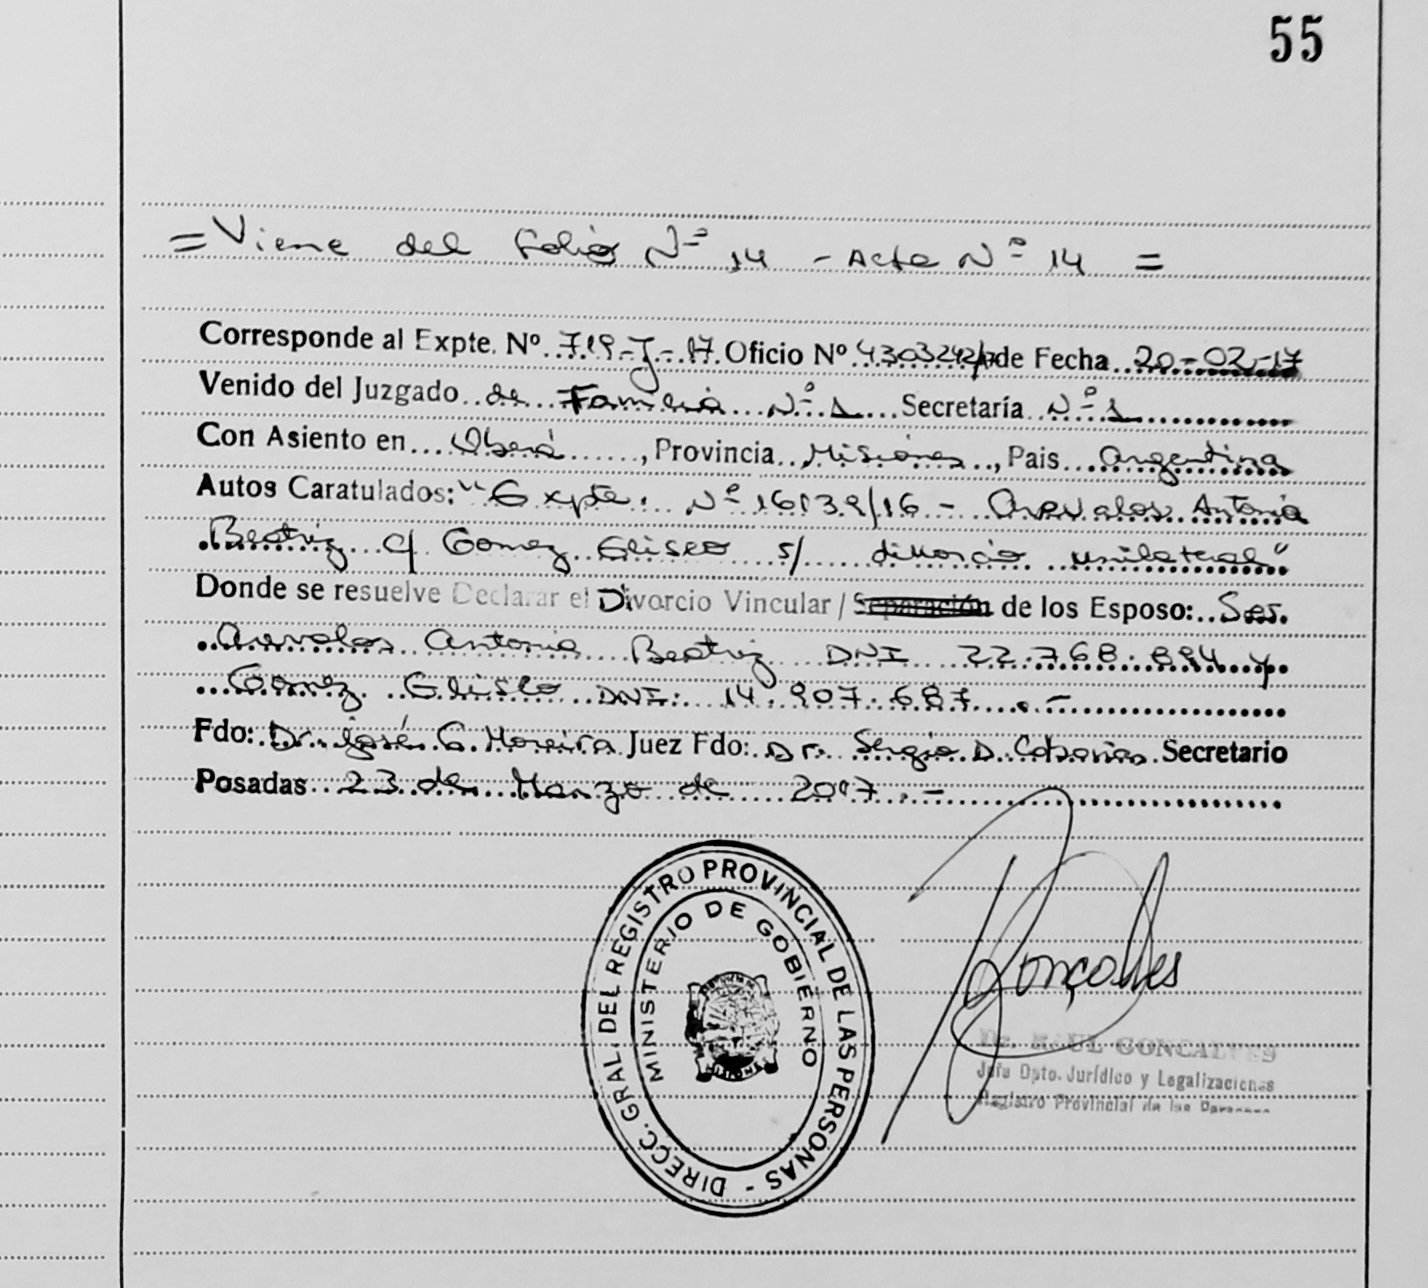 55
= Viene del folio Nº 14 - Acta Nº 14 =
Corresponde al Expte. Nº 719-J-17 Oficio Nº de Fecha 20-02-17
Venido del Juzgado de Familia Nº 1 Secretaría Nº 1
Con Asiento en Oberá, Provincia Misiones, Pais Argentina
Autos Caratulados: "Expte. Nº - Arevalos Antonia
Beatriz c/ Gomez Eliseo s/ divorcio unilateral"
Donde se resuelve Declarar el Divorcio Vincular / Separación de los Esposo: Sres.
Arevalos Antonia Beatriz DNI 22.768.894 y
Gomez Eliseo DNI: 14.907.687.-
Fdo: Dr. José G. Moreira Juez Fdo: Dr. Sergio D. Secretario
Posadas 23 de Marzo de 2017.-
DIRECC. GRAL. DEL REGISTRO PROVINCIAL DE LAS PERSONAS -
MINISTERIO DE GOBIERNO
MISIONES
Gonçalves
Dr. RAUL GONCALVES
Jefe Dpto. Jurídico y Legalizaciones
Registro Provincial de las Personas